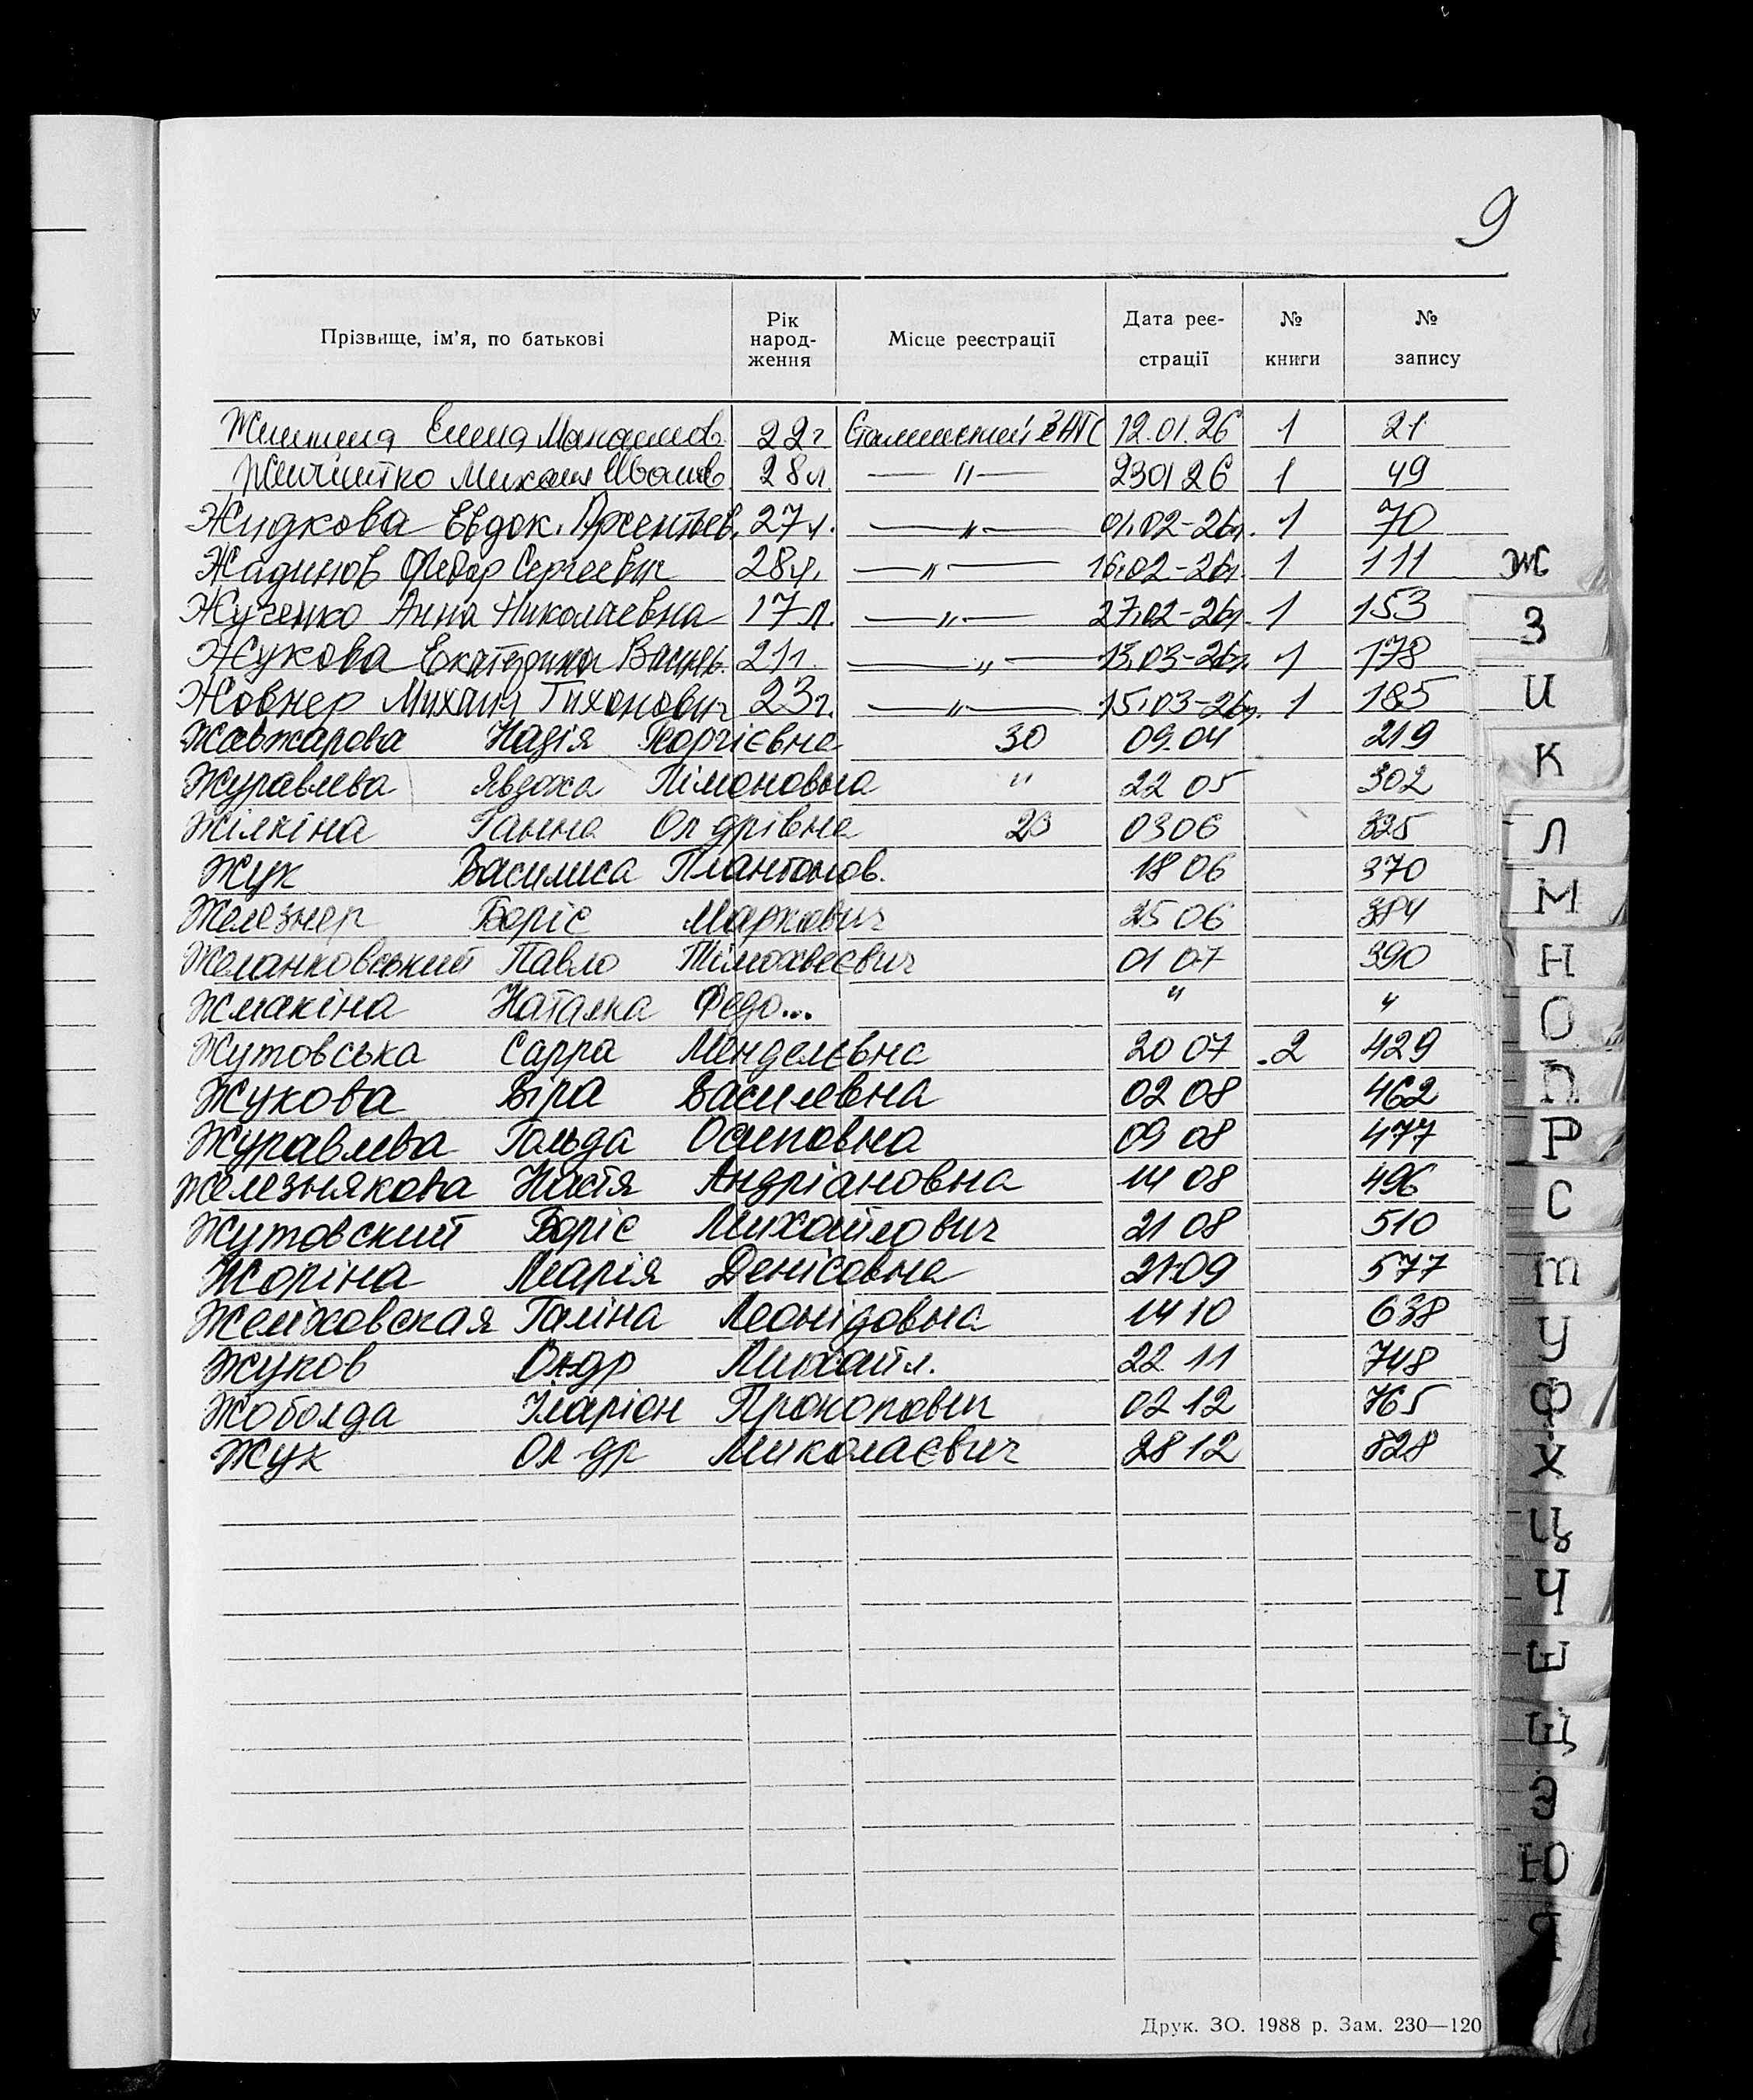 9
Прізвище, ім'я, по батькові Рік народ- ження Місце реєстрації Дата реє- страції № книги № запису
Елена 22г Сталинский ЗАГС 12.01.26 1 21
Михаил Иванов 28л — " — 23 01 26 1 49
Жидкова Евдок. Арсентьев. 27л. — " — 01.02-26г. 1 70
Жадинов Федор Сергеевич 28л. — " — 16.02-26г. 1 111
Жученко Анна Николаевна 17л. — " — 27.02-26г. 1 153
Жукова Екатерина Васильев. 21г. — " — 13.03-26г. 1 178
Жовнер Михаил Тихонович 23г. — " — 15.03-26г. 1 185
Жавжарова Надія Георгієвна 30 09.04 219
Журавлева Явдоха Пімоновна " 22 05 302
Жілкіна Ганна Ол дрівна 23 03 06 325
Жук Василиса Платонов. 18 06 370
Железнер Боріс Маркович 25 06 384
Желанковський Павло Тімохвеєвич 01 07 390
Жмакіна Наталка Федо... " "
Жутовська Сарра Менделєвна 20 07 .2 429
Жукова Віра Василевна 02 08 462
Журавлева Гольда Осиповна 09 08 477
Железнякова Настя Андріановна 14 08 496
Жутовский Боріс Михайлович 21 08 510
Жоріна Марія Денісовна 21.09 577
Желіховская Галіна Леонідовна 14 10 638
Жуков Ол-др Михайл. 22 11 748
Жоболда Іларіон Прокопович 02 12 765
Жук Ол др Миколаєвич 28 12 828
Друк. ЗО. 1988 р. Зам. 230—120
Ж
З
И
К
Л
М
Н
О
П
Р
С
т
У
Ф
Х
Ц
Ч
Ш
Щ
Э
Ю
Я